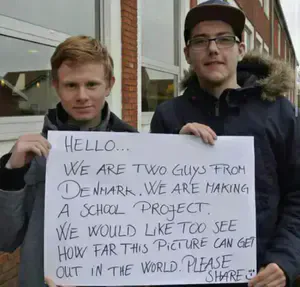 HELLO...
WE ARE TWO GUYS FROM
DENMARK. WE ARE MAKING
A SCHOOL PROJECT.
WE WOULD LIKE TOO SEE
HOW FAR THIS PICTURE CAN GET
OUT IN THE WORLD. PLEASE
SHARE :)